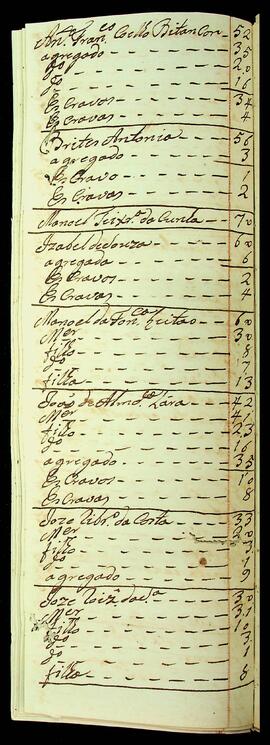 Anto. Franco. Coello Bitancor 52
agregado 35
Jo 20
Jo 16
Escravos 34
Escravas 4
Brites Antonia 56
agregado 3
Escravo 1
Escravas 2
Manoel Teixra. da Cunha 70
Izabel de Souza 60
agregada 6
Escravos 2
Escravas 4
Manoel da Fonca. Leitao 60
Mer 30
filho 8
Jo 7
filha 13
João de Almda. Lara 42
Mer 41
filho 23
Jo 16
agregado 35
Escravos 10
Escravas 8
Joze Ribro. da Costa 33
Mer 20
filho 3
Jo
agregado 9
Joze 30
Mer 31
filho 10
Jo 3
Jo 1
filha 8